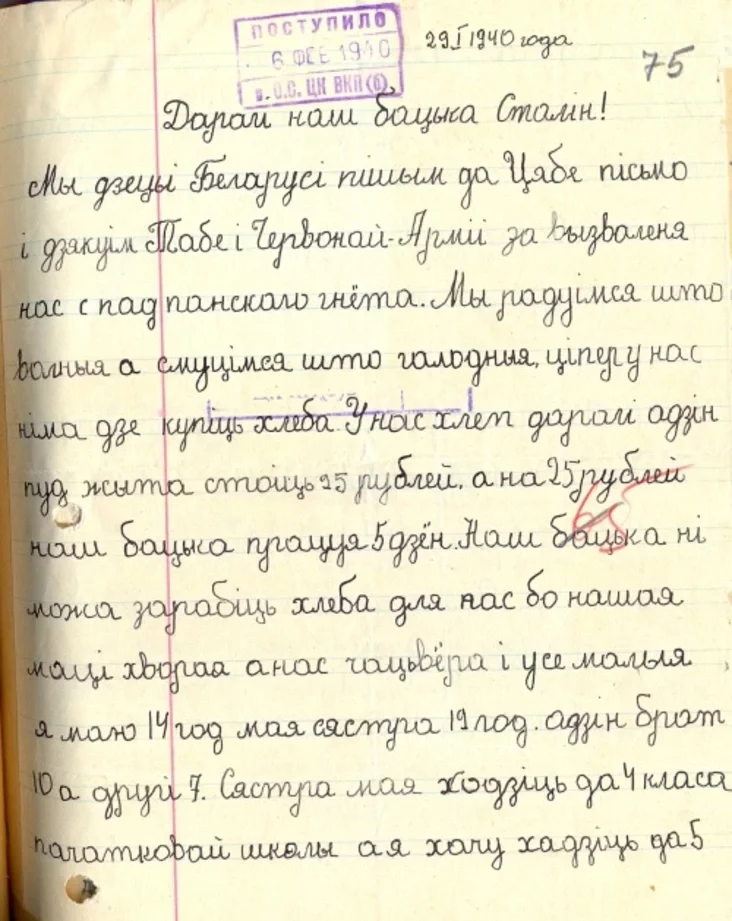 ПОСТУПИЛО
6 ФЕВ 1940
в О.С. ЦК ВКП(б)
29 I 1940 года
75
Дарагі наш бацька Сталін!
Мы дзеці Беларусі пішым да Цябе пісьмо
і дзякуім Табе і Червонай-Арміі за вызваленя
нас с пад панского гнёта. Мы радуімся што
вольныя а смуцімся што галодныя, ціпер у нас
німа дзе купіць хлеба. У нас хлеп дарагі адзін
пуд жыта стоіць 25 рублей, а на 25 рублей
наш бацька працуя 5 дзён. Наш бацька ні
можа зарабіць хлеба для нас бо нашая
маці хворая а нас чацьвёра і усе малыя
я маю 14 год мая сястра 19 год. адзін брат
10 а другі 7. Сястра мая ходзіць да 4 класа
початковай школы а я хачу хадзіць да 5